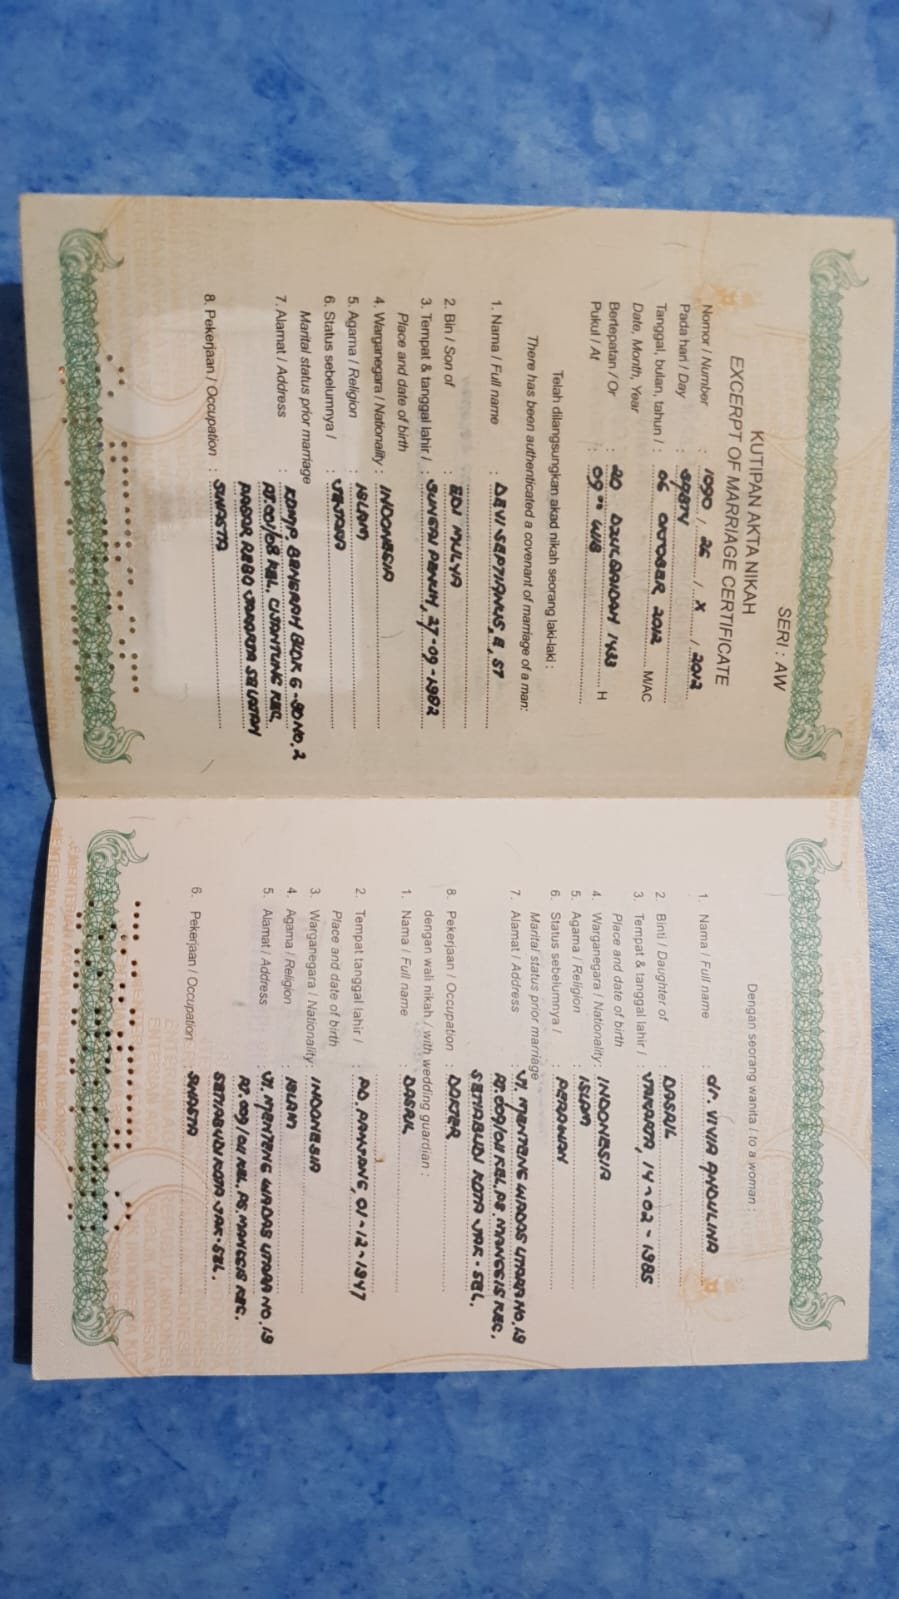 SERI : AW
KUTIPAN AKTA NIKAH
EXCERPT OF MARRIAGE CERTIFICATE
Nomor / Number : 1090 / 26 / X / 2012
Pada hari / Day : SABTU
Tanggal, bulan, tahun / : 06 OKTOBER 2012 M/AC
Date, Month, Year
Bertepatan / Or : 20 DZULQAIDAH 1433 H
Pukul / At : 09.00 WIB
Telah dilangsungkan akad nikah seorang laki-laki :
There has been authenticated a covenant of marriage of a man:
1. Nama / Full name : DEVI SEPTIANUS, E, ST
2. Bin / Son of : EDI MULYA
3. Tempat & tanggal lahir / : SUNGAI PENUH, 27-09-1982
Place and date of birth
4. Warganegara / Nationality : INDONESIA
5. Agama / Religion : ISLAM
6. Status sebelumnya / : JEJAKA
Marital status prior marriage
7. Alamat / Address : KOMP. BENGRAH BLOK G-80 NO. 2
RT.001/08 KEL. CIJANTUNG KEC.
PASAR REBO JAKARTA SELATAN
8. Pekerjaan / Occupation : SWASTA
Dengan seorang wanita / to a woman :
1. Nama / Full name : dr. VIVIA ANDULINA
2. Binti / Daughter of : DASRIL
3. Tempat & tanggal lahir / : JAKARTA, 14-02-1985
Place and date of birth
4. Warganegara / Nationality : INDONESIA
5. Agama / Religion : ISLAM
6. Status sebelumnya / : PERAWAN
Marital status prior marriage
7. Alamat / Address : Jl. MENTENG WADAS UTARA NO. 19
RT.009/011 KEL. PS. MANGGIS KEC.
SETIABUDI KOTA JAK-SEL.
8. Pekerjaan / Occupation : DOKTER
dengan wali nikah / with wedding guardian :
1. Nama / Full name : DASRIL
2. Tempat tanggal lahir / : PD. PANJANG, 01-12-1947
Place and date of birth
3. Warganegara / Nationality : INDONESIA
4. Agama / Religion : ISLAM
5. Alamat / Address : Jl. MENTENG WADAS UTARA NO. 19
RT.009/011 KEL. PS. MANGGIS KEC.
SETIABUDI KOTA JAK-SEL.
6. Pekerjaan / Occupation : SWASTA